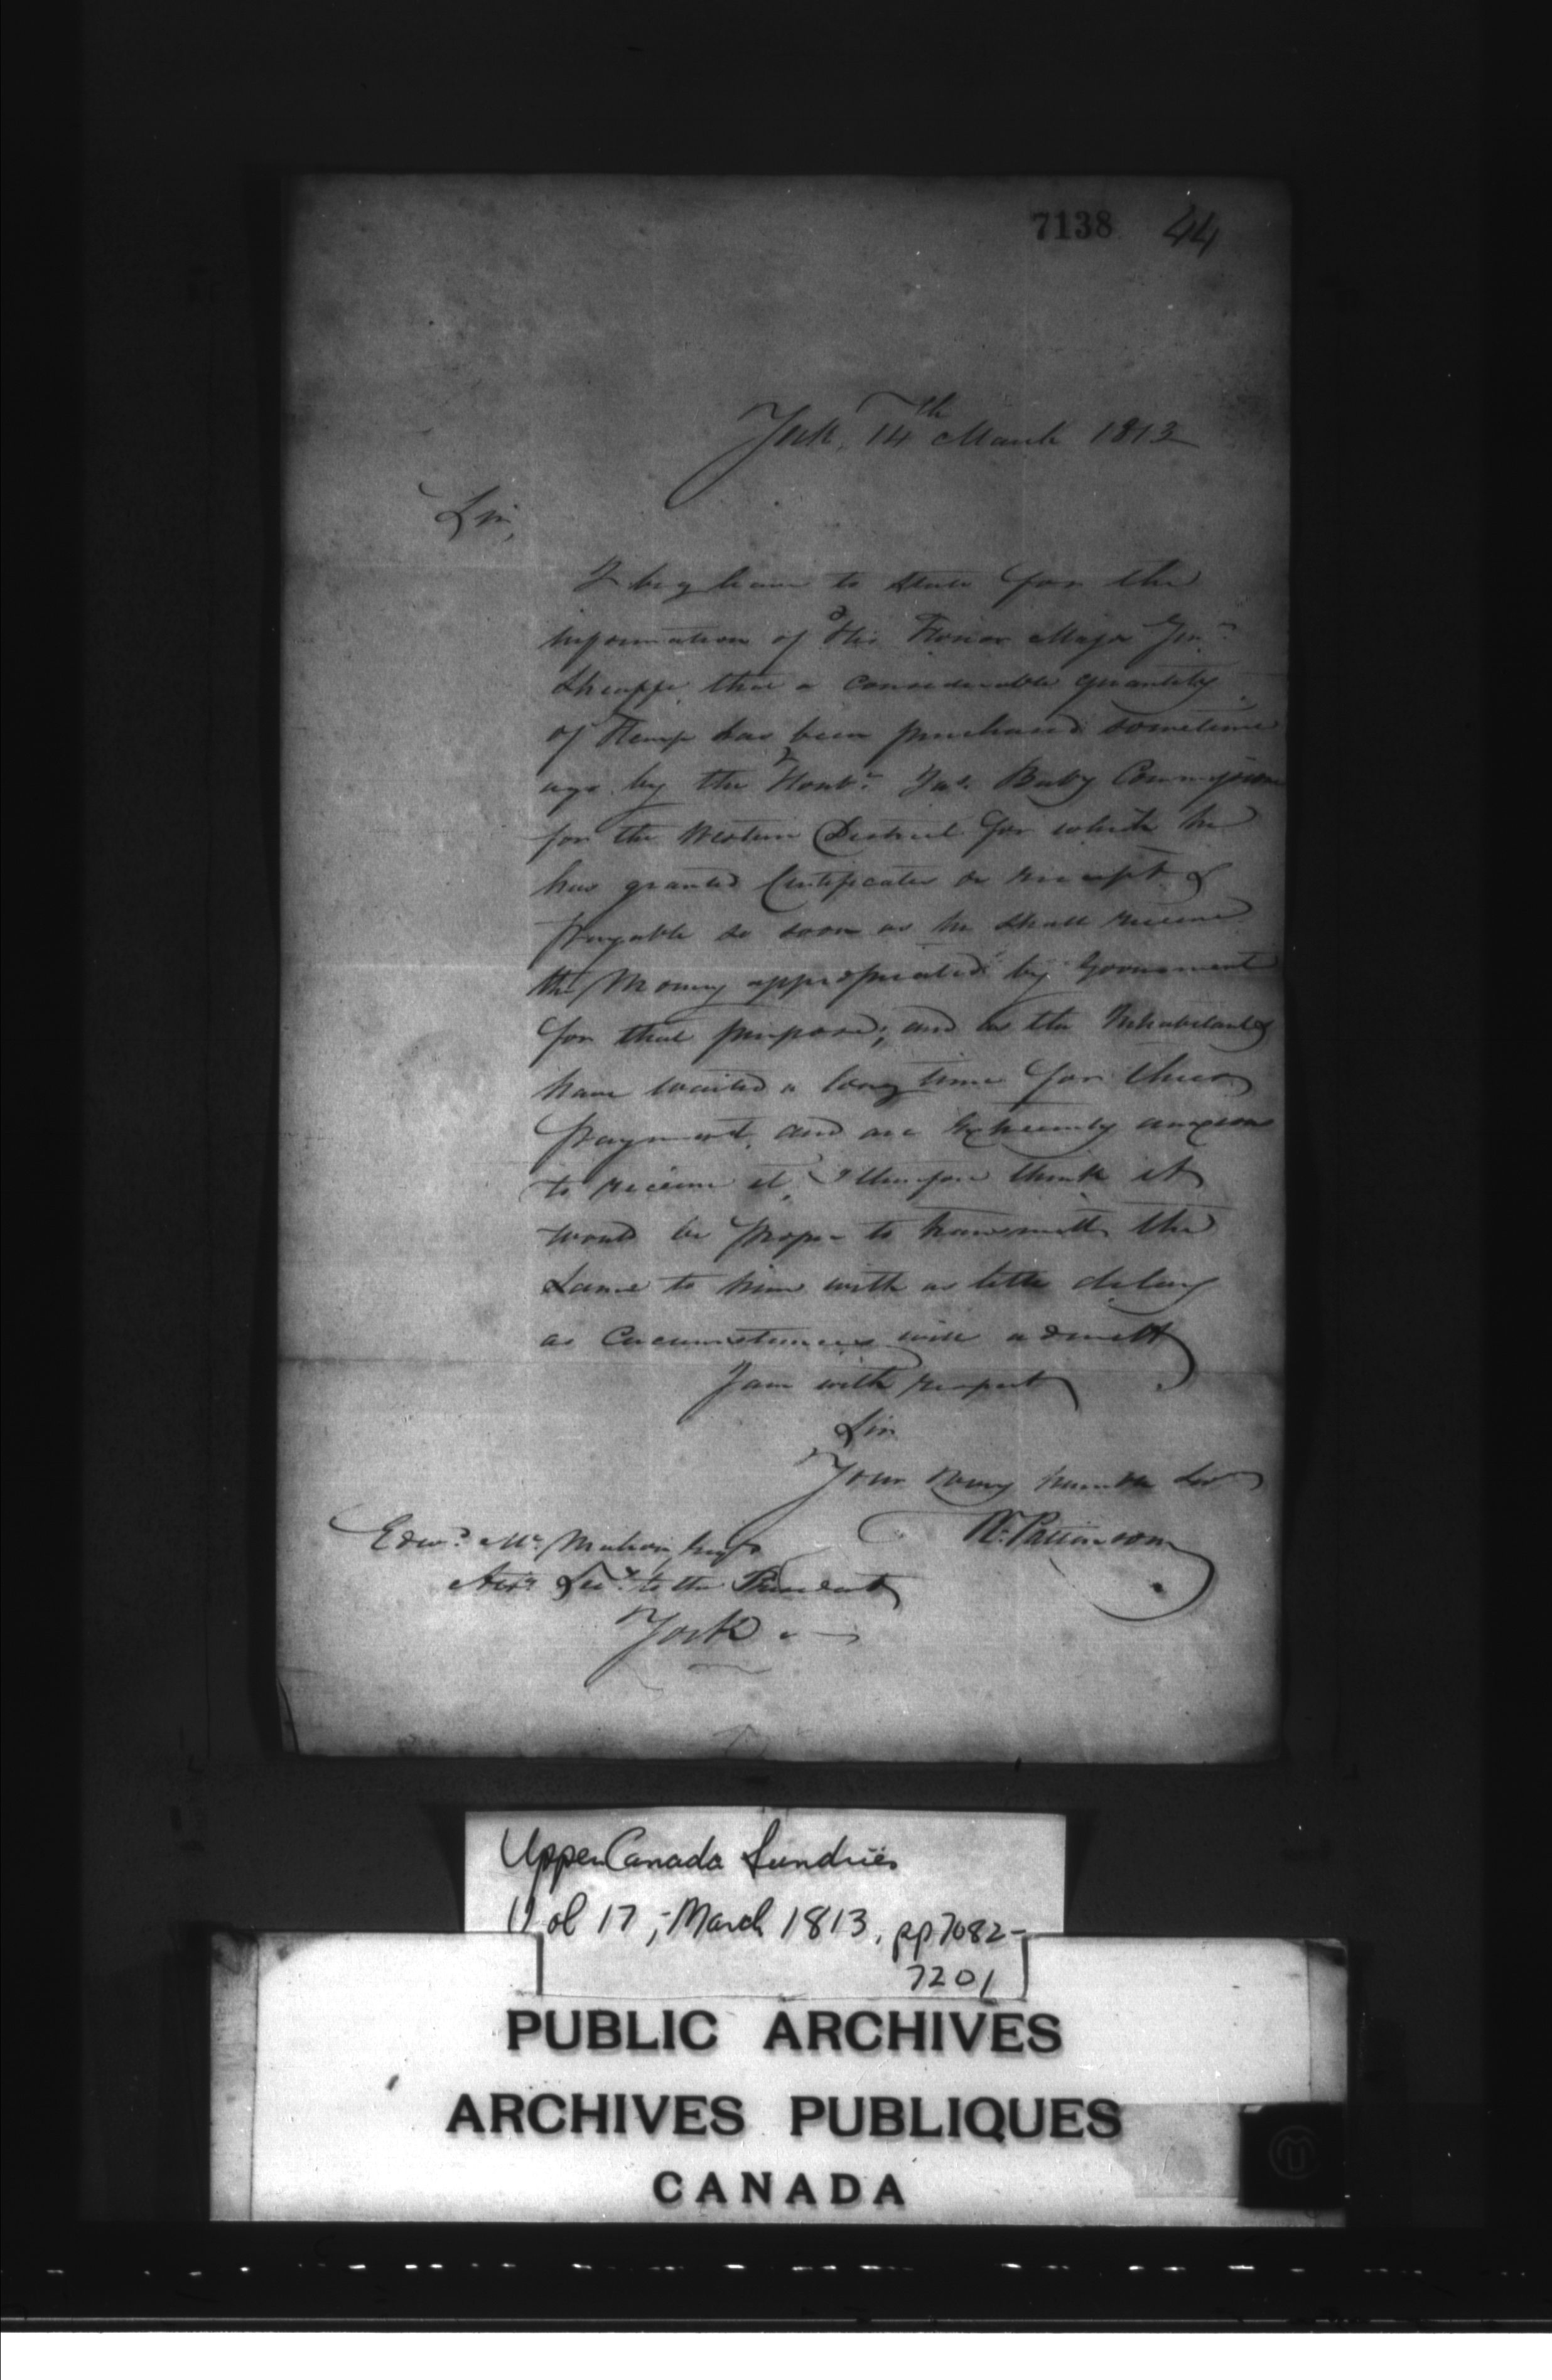 7138 44
York, 14th March 1813
Sir,
I beg leave to state for the
information of His Honor Major Genl
Sheaffe that a considerable quantity
of Hemp has been purchased sometime
ago by the Honble Jas. Baby Commissioner
for the Western District for which he
has granted Certificates or receipts
payable so soon as he shall receive
the Money appropriated by Government
for that purpose; and as the Inhabitants
have waited a long time for their
payment, and are extremely anxious
to receive it, I therefore think it
would be proper to transmitt the
Same to him with as little delay
as Circumstances will admitt
I am with respect
Sir
Your very humble Ser
R. Pattinson
Edwd McMahon, Esqr
Secy to the President
York
Upper Canada Sundries
Vol 17, March 1813, pp 7082-
7201
PUBLIC ARCHIVES
ARCHIVES PUBLIQUES
CANADA